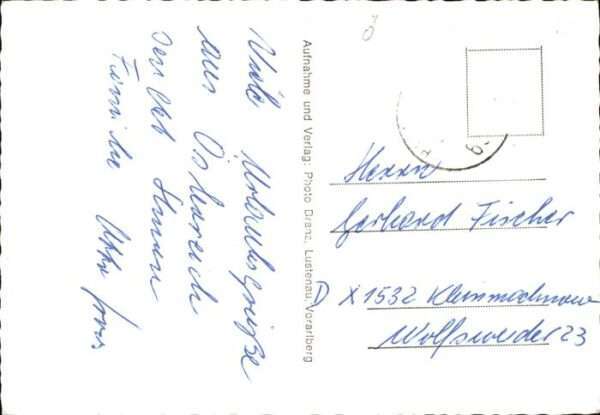 Viele Urlaubsgrüße
aus Österreich
sendet Ihnen
Familie Otto
Aufnahme und Verlag: Photo Branz, Lustenau, Vorarlberg
Herrn
Gerhard Fischer
D X 1532 Kleinmachnow
Wolfswerder 23